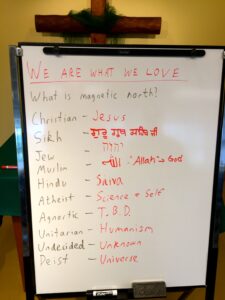 WE ARE WHAT WE LOVE
What is magnetic north?
Christian - Jesus
Sikh - ਗੁਰੂ ਗ੍ਰੰਥ ਸਾਹਿਬ ਜੀ
Jew - יהוה
Muslim - الله "Allah" → God
Hindu - Saiva
Atheist - Science & Self
Agnostic - T.B.D.
Unitarian - Humanism
Undecided - Unknown
Deist - Universe